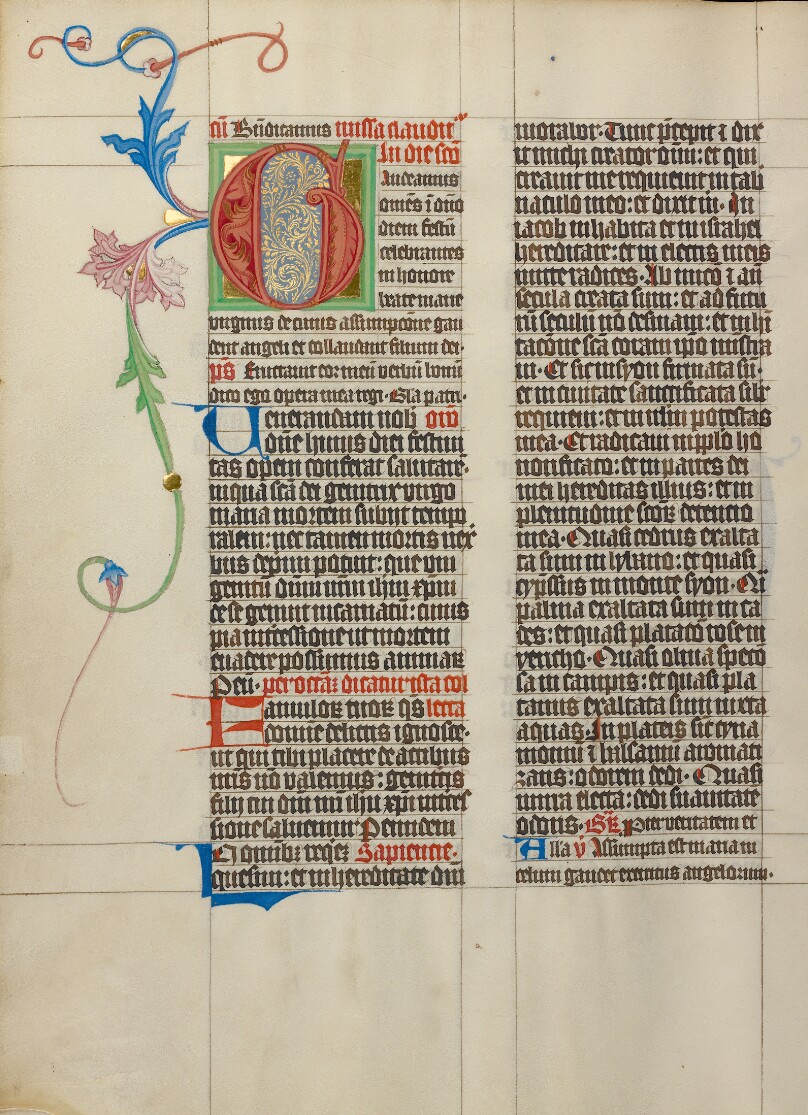 cū Bn̄dicamus missa claudit̄
In die scō
Gaudeamus
om̄es ī dn̄o
diem festū
celebrantes
in honore
beate marie
virginis de cuius assumpcōne gau
dent angeli et collaudant filium dei·
p̄s Eructauit cor meū verbū bonū
dico ego opera mea regi· Gl̄a patri·
Ueneranda nobis dn̄e
one huius diei festiui
tas opem conferat salutarē·
in qua scā dei genitrix virgo
maria mortem subijt tempo
ralem: nec tamen mortis nex
ibus deprimi potuit: que uni
genitū
de se genuit incarnatū: cuius
pia intercessione ut mortem
euadere possimus animarꝫ
Peu· per octaꝫ dicatur ista col
Famulorꝫ tuorꝫ qs̄ lecta
domine delictis ignosce·
ut qui tibi placere de actibus
nr̄is nō valemus: genitricis
filij tui dn̄i nr̄i ihū xp̄i interces
sione saluemur Per eundem
In omībꝫ reqeꝫ Sapiencie·
quesiui: et in hereditate dn̄i
morabor· Tunc p̄cepit ⁊ dix
it michi creator om̄iū: et qui
creauit me requieuit in tab
naculo meo: et dixit m̄· In
iacob inhabita et in israhel
hereditare: et in electis meis
mitte radices· Ab inicio ⁊ an̄
secula creata sum: et ad futu
rū seculū nō desinam: et in hī
tacōne scā coram ipo ministra
ui· Et sic in syon firmata sū·
et in ciuitate sanctificata silr̄
requieui: et in irlm̄ potestas
mea· Et radicaui in pplo ho
norificato: et in partes dei
mei hereditas illius: et in
plenitudine scōꝝ detencio
mea· Quasi cedrus exalta
ta sum in lybano: et quasi
cypssus in monte syon· Q̄i
palma exaltata sum in ca
des: et quasi plātacō rose in
yericho· Quasi oliua specō
sa in campis: et quasi pla
tanus exaltata sum iuxta
aquas· In plateis sicut cyna
momū ⁊ balsamū aromati
zans: odorem dedi· Quasi
mirra electa: dedi suauitatē
odoris· Gr̄ Pter veritatem et
Alla v̄ Assumpta est maria in
celum gaudet exercitus angelorum·